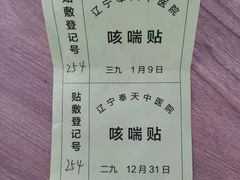 贴敷登记号
254
辽宁奉天中医院
咳喘贴
三九 1月9日
贴敷登记号
254
辽宁奉天中医院
咳喘贴
二九 12月31日